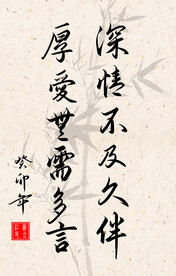 深情不及久伴
厚愛無需多言
癸卯年